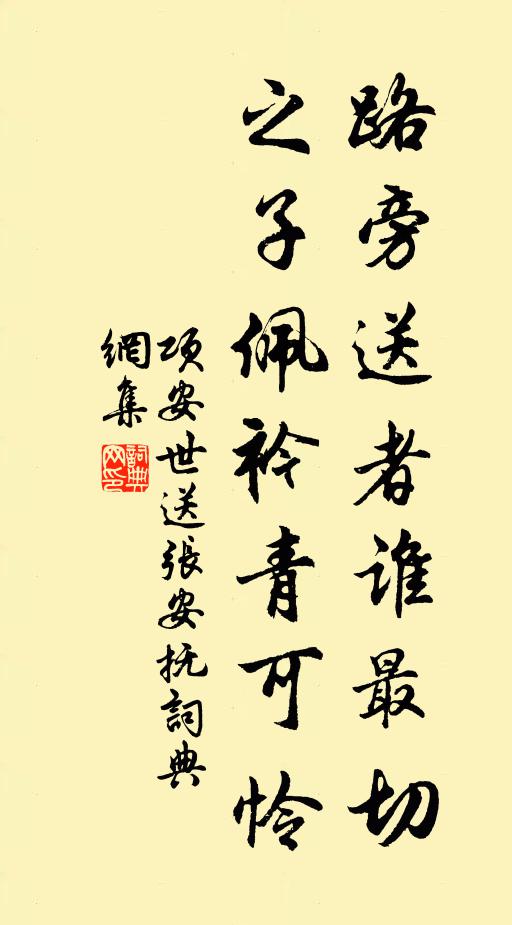 路旁送者谁最切
之子佩衿青可怜
项安世送張安抚詞典
網集
詞典網印